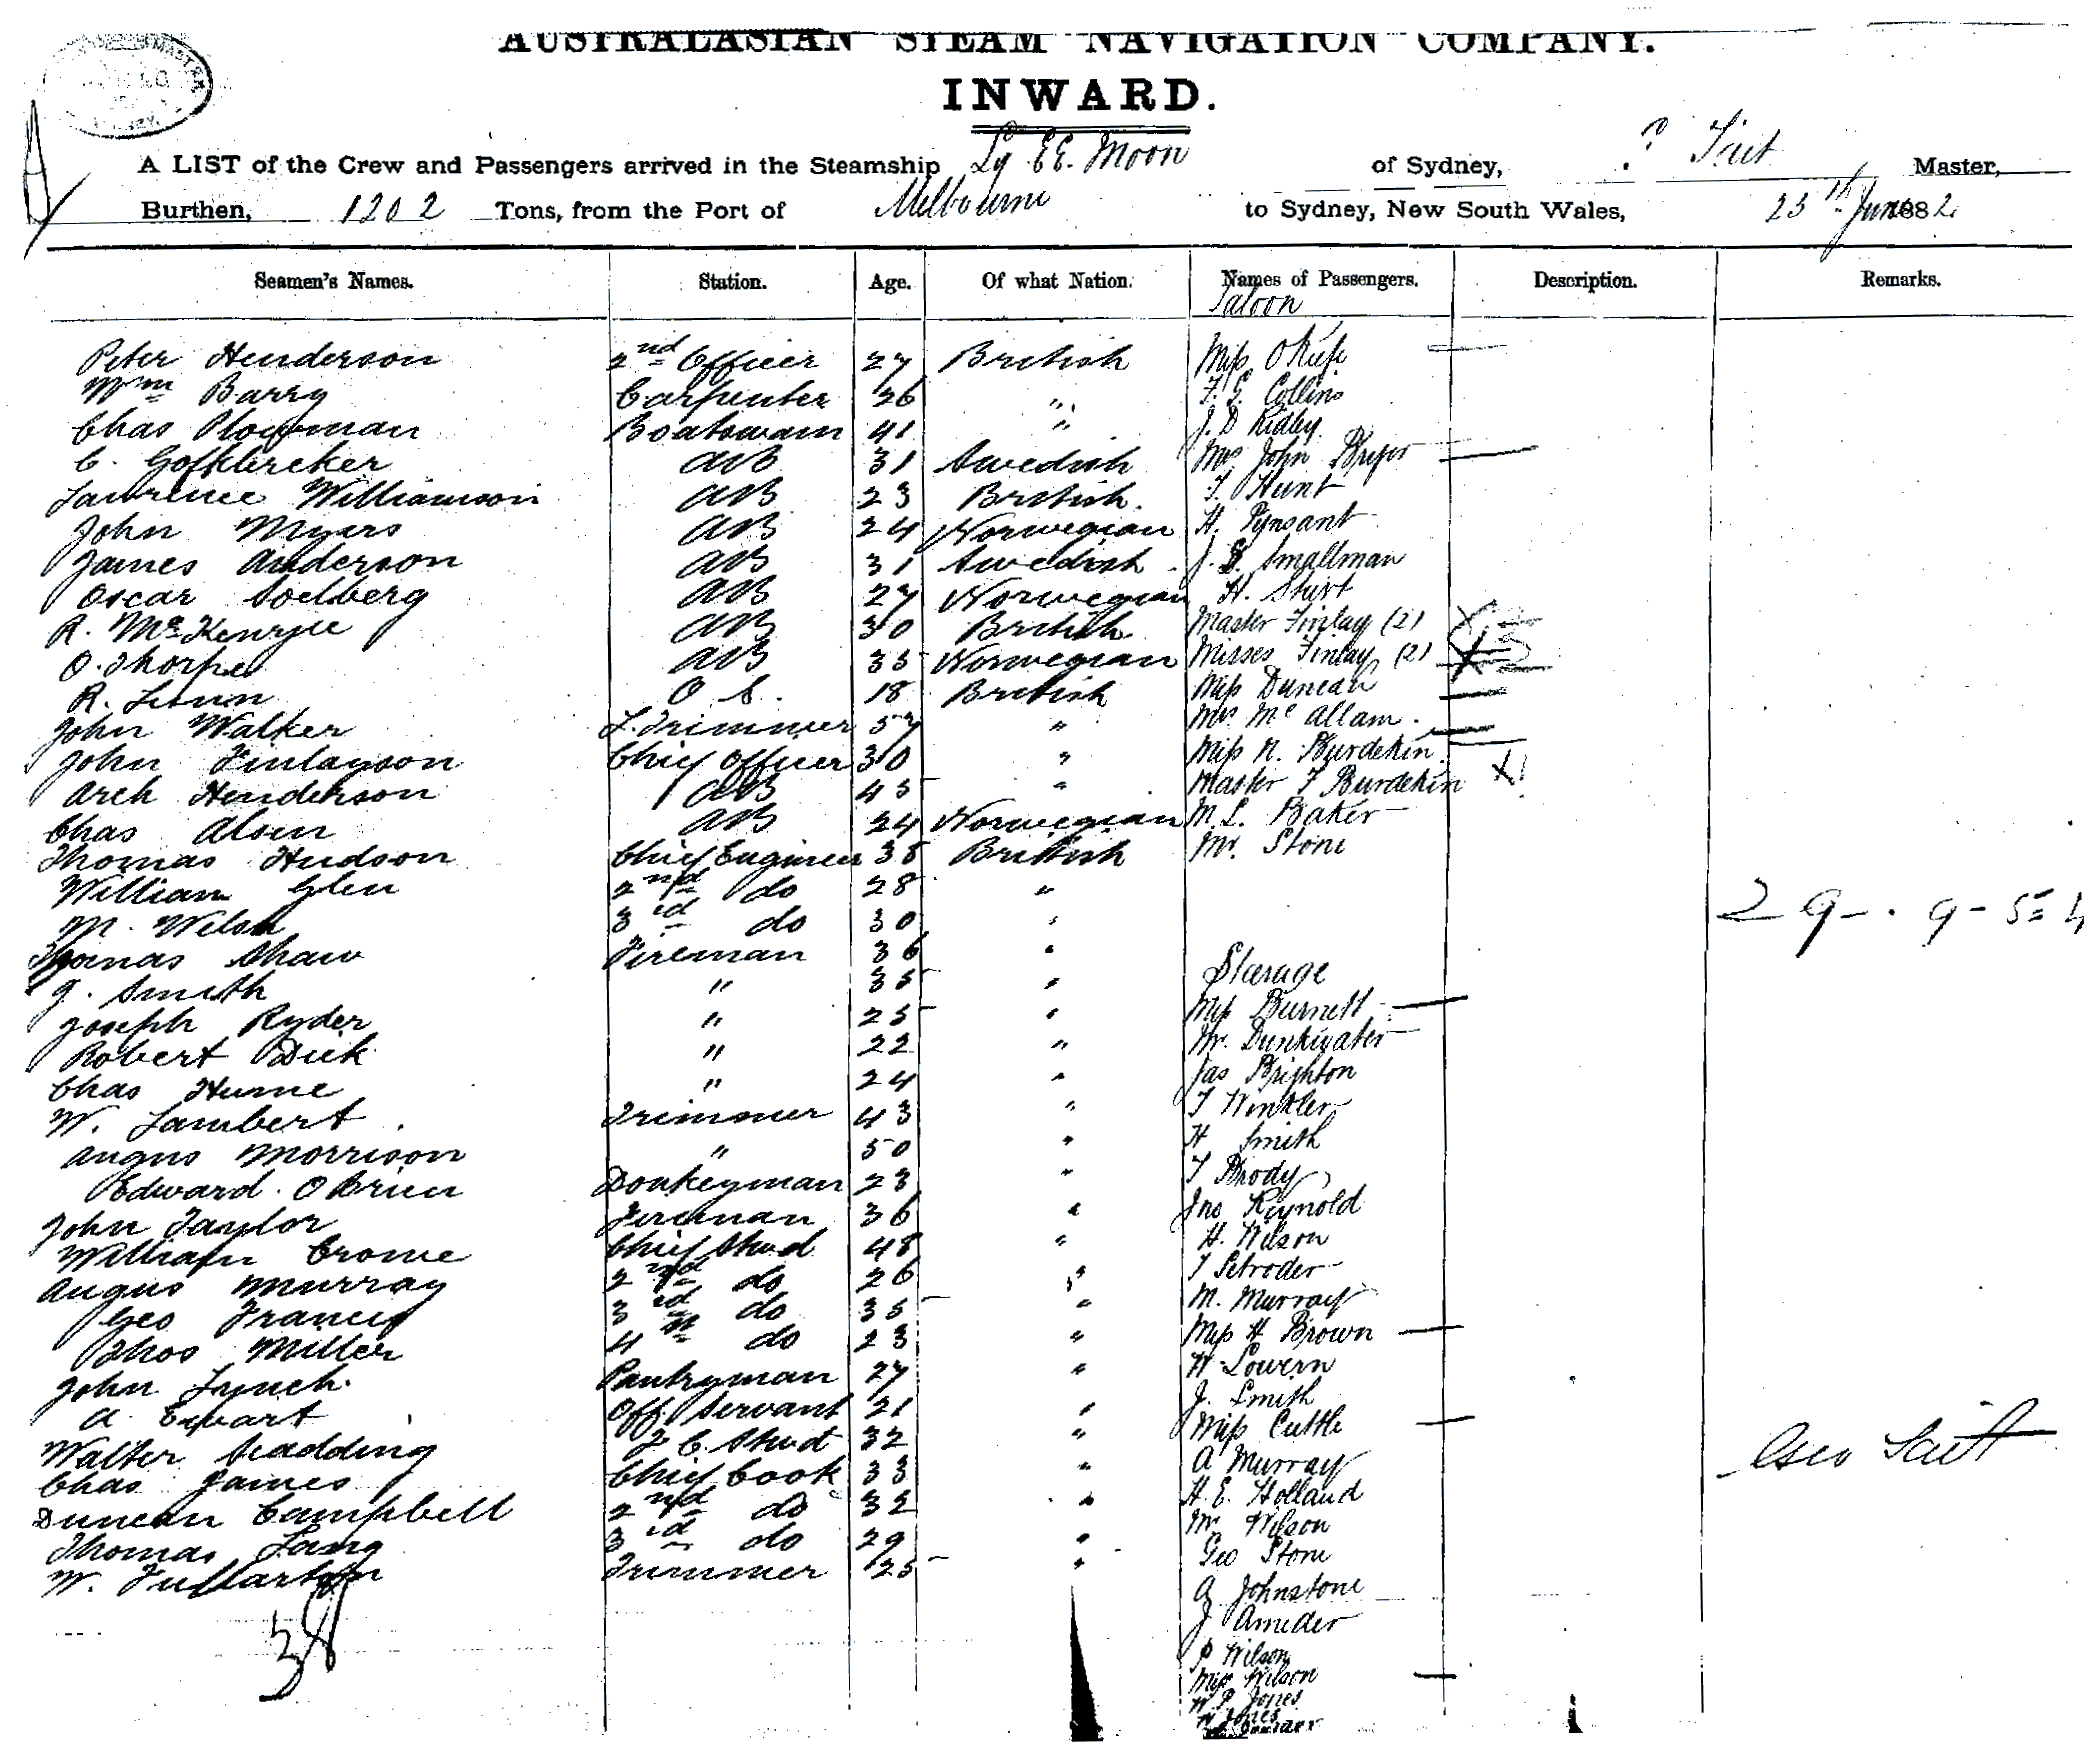 AUSTRALASIAN STEAM NAVIGATION COMPANY.
INWARD.
A LIST of the Crew and Passengers arrived in the Steamship Ly EE. Moon of Sydney, Master,
Burthen, 1202 Tons, from the Port of Melbourne to Sydney, New South Wales, 25th June 1882
Seamen's Names. Station. Age. Of what Nation. Names of Passengers. Description. Remarks.
Saloon
Peter Henderson 2nd Officer 27 British Miss
Wm Barry Carpenter 26 " Collins
Chas Plowman Boatswain 41 " J. D Ridley
C. AB 31 Swedish Mrs John
Lawrence Williamson AB 23 British. T. Hunt
John Myers AB 24 Norwegian H. Pynsant
James Anderson AB 31 Swedish J. S. Smallman
Oscar Soelberg AB 27 Norwegian H. Shirt
R. McKenzie AB 30 British Master Finlay (2)
O. Thorpe AB 35 Norwegian Misses Finlay (2)
R. Lunn O S. 18 British Miss Duncan
John Walker L. Trimmer 57 " Mrs Mc Allam.
John Finlayson Chief Officer 30 " Miss N. Burdekin
Arch Henderson AB 45 " Master F Burdekin
Chas Olsen AB 24 Norwegian M. L. Baker
Thomas Hudson Chief Engineer 38 British Mr. Stone
William Glen 2nd do 28 "
M. Welsh 3rd do 30 "
29 - . 9 - 5 = 4
Thomas Shaw Fireman 36 "
Steerage
J. Smith " 35 "
Joseph Ryder " 25 " Miss Burnett
Robert Dick " 22 " Mr. Drinkwater
Chas Hume " 24 " Jas Brighton
W. Lambert Trimmer 43 " T Winkler
Angus Morrison " 50 " H Smith
Edward O Brien Donkeyman 23 " T Brody
John Taylor Fireman 36 " Jno Reynold
William Crowe Chief Stwd 48 " H. Wilson
Angus Murray 2nd do 26 " T Schroder
Geo Francis 3rd do 35 " M. Murray
Thos Miller 4th do 23 " Miss H Brown
John Lynch Pantryman 27 " W Lowern
A. Ewart Off. Servant 21 " J. Smith
Walter Scadding F C. Stwd 32 " Miss Cuttle
Chas James Chief Cook 33 " A Murray
Duncan Campbell 2nd do 32 " H. E. Holland
Thomas Lang 3rd do 29 " Mr Wilson
W. Fullarton Trimmer 25 " Geo Stone
A Johnstone
J Ameder
P Wilson
Miss Wilson
W P Jones
W Jones
38